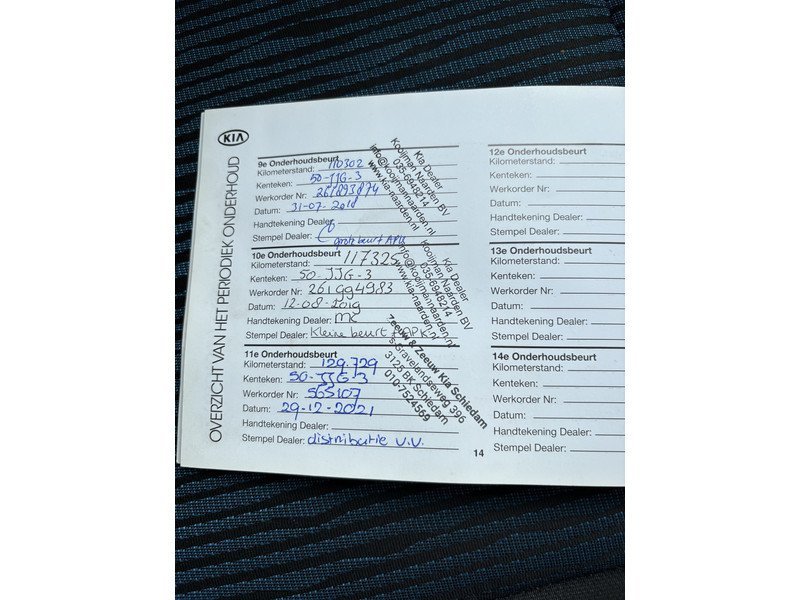 KIA
OVERZICHT VAN HET PERIODIEK ONDERHOUD
9e Onderhoudsbeurt
Kilometerstand: 110302
Kenteken: 50-JJG-3
Werkorder Nr: 261893874
Datum: 31-07-2018
Handtekening Dealer:
Stempel Dealer: grote beurt APK
Kia Dealer
Kooijman Naarden BV
035-6948214
info@kooijmannaarden.nl
www.kia-naarden.nl
10e Onderhoudsbeurt
Kilometerstand: 117325
Kenteken: 50-JJG-3
Werkorder Nr: 261994983
Datum: 12-08-2019
Handtekening Dealer: MK
Stempel Dealer: Kleine beurt APK
Kia Dealer
Kooijman Naarden BV
035-6948214
info@kooijmannaarden.nl
www.kia-naarden.nl
11e Onderhoudsbeurt
Kilometerstand: 129.729
Kenteken: 50-JJG-3
Werkorder Nr: 565107
Datum: 29-12-2021
Handtekening Dealer:
Stempel Dealer: distributie v.v.
Zeeuw & Zeeuw Kia Schiedam
's-Gravelandseweg 396
3125 BK Schiedam
010-7524569
12e Onderhoudsbeurt
Kilometerstand:
Kenteken:
Werkorder Nr:
Datum:
Handtekening Dealer:
Stempel Dealer:
13e Onderhoudsbeurt
Kilometerstand:
Kenteken:
Werkorder Nr:
Datum:
Handtekening Dealer:
Stempel Dealer:
14e Onderhoudsbeurt
Kilometerstand:
Kenteken:
Werkorder Nr:
Datum:
Handtekening Dealer:
Stempel Dealer:
14